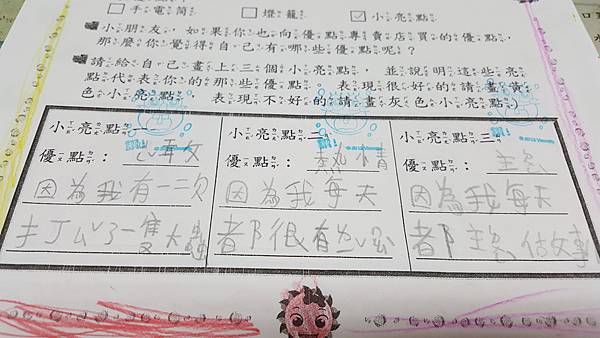 手電筒 燈籠 小亮點
小朋友,如果你也向優點專賣店買的優點,
那麼你覺得自己有哪些優點呢?
請給自己畫上三個小亮點,並說明這些亮
點代表你的那些優點。表現很好的請畫黃
色小亮點,表現不好的請畫灰色小亮點。)
小亮點一
優點:
因為我有一次
打ㄙˇ了一隻大
小亮點二
優點:熱情
因為我每天
都很有
小亮點三
優點:
因為我每天
都